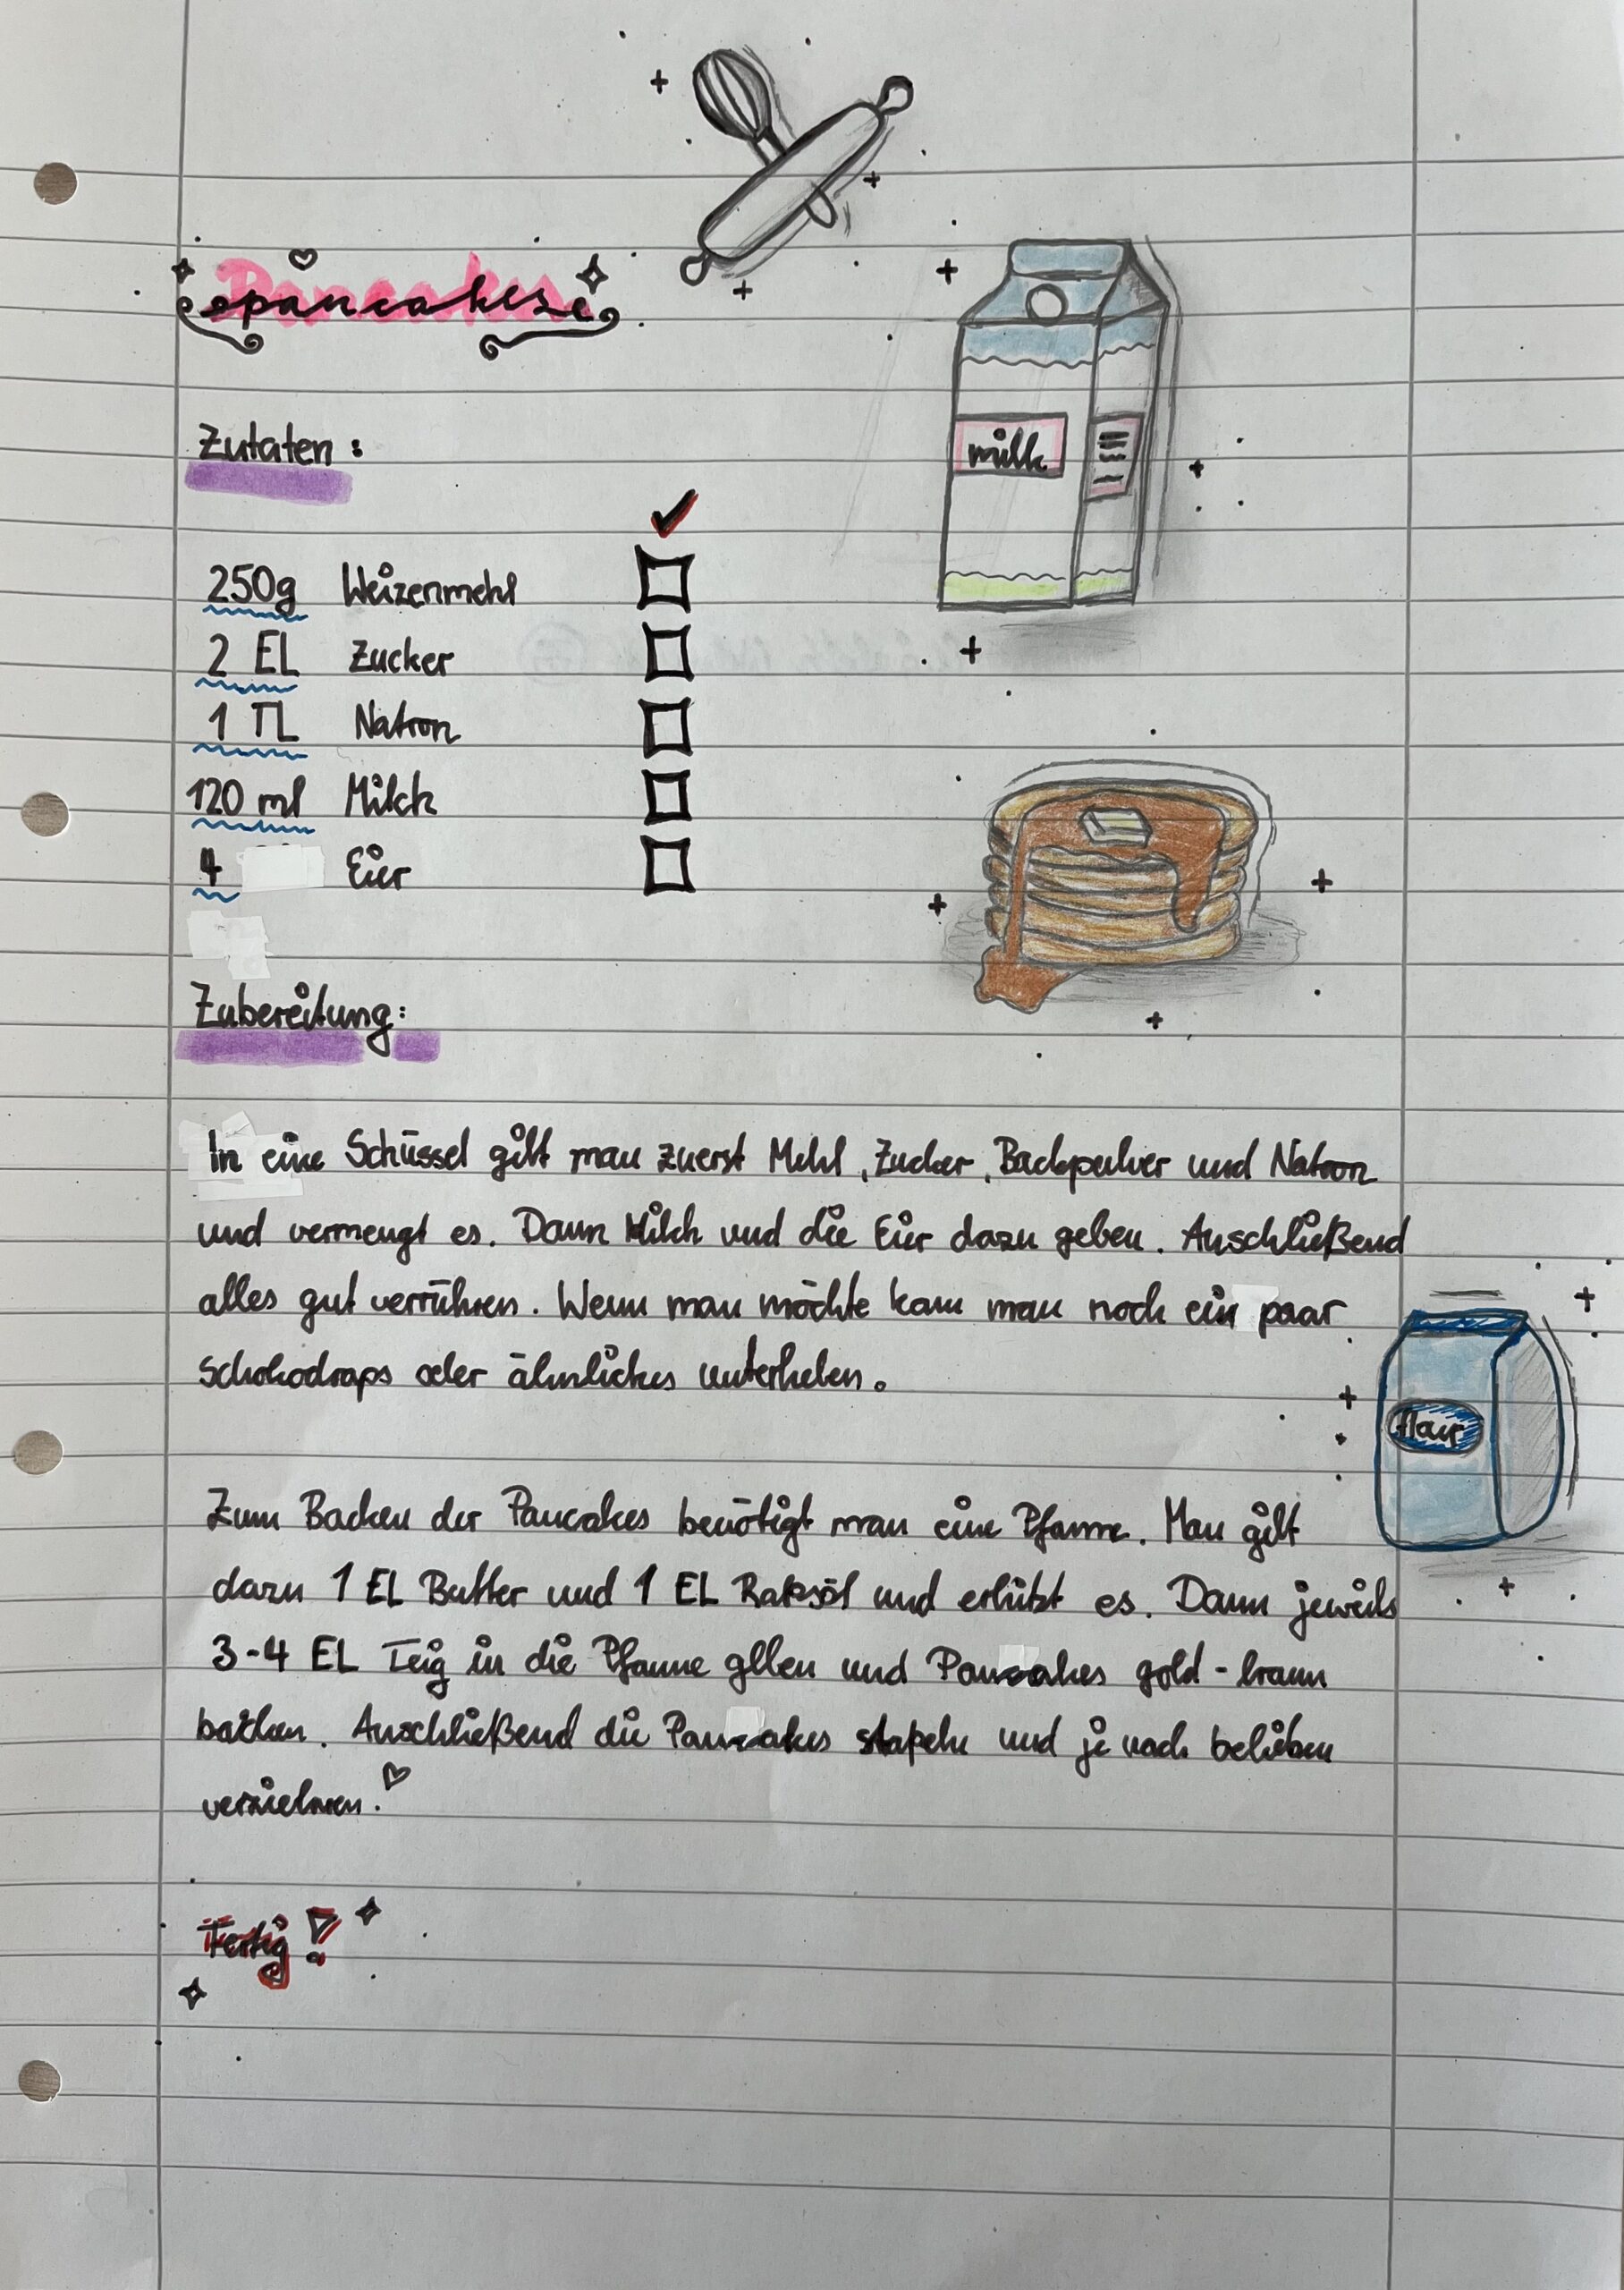 pancakes
milk
Zutaten:
250g Weizenmehl
2 EL Zucker
1 TL Natron
120 ml Milch
4 Eier
Zubereitung:
In eine Schüssel gibt man zuerst Mehl, Zucker, Backpulver und Natron
und vermengt es. Dann Milch und die Eier dazu geben. Anschließend
alles gut verrühren. Wenn man möchte kann man noch ein paar
Schokodraps oder ähnliches unterheben.
flour
Zum Backen der Pancakes benötigt man eine Pfanne. Man gibt
dazu 1 EL Butter und 1 EL Rapsöl und erhitzt es. Dann jeweils
3-4 EL Teig in die Pfanne geben und Pancakes gold-braun
backen. Anschließend die Pancakes stapeln und je nach belieben
verziehren.
Fertig!